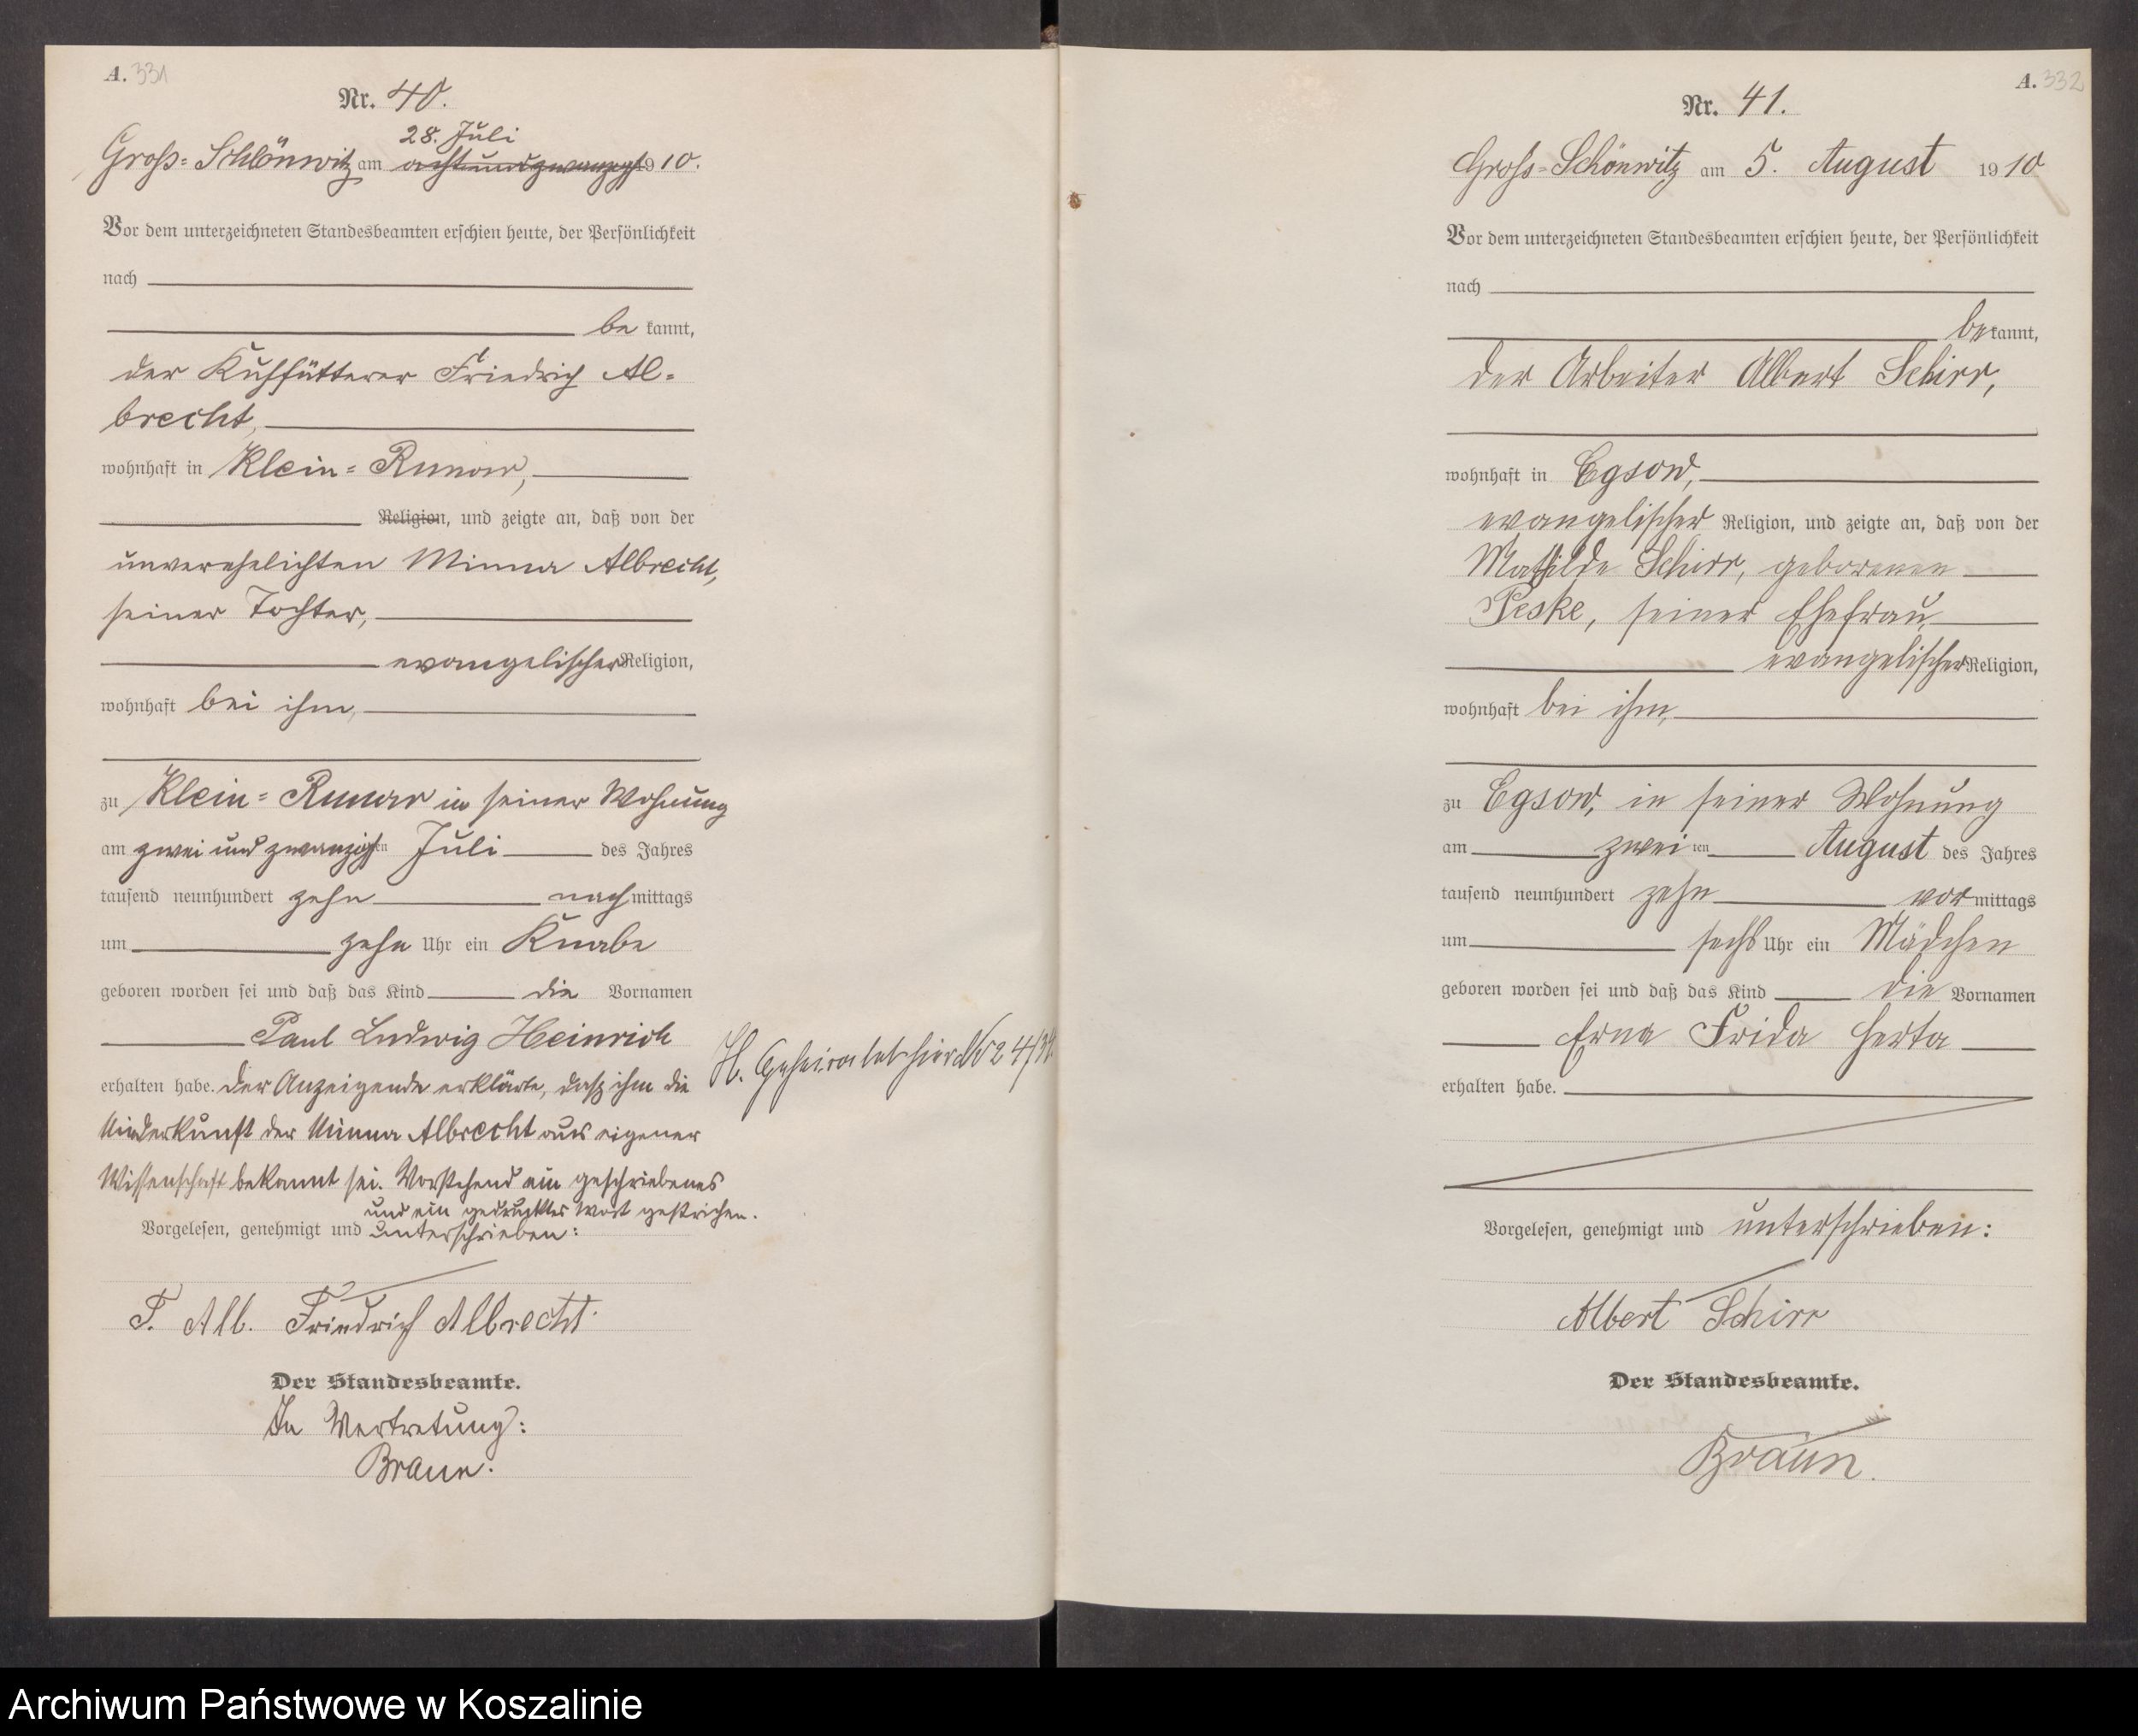 A. 331
Nr. 40.
28. Juli
Groß-Schlönwitz am achtundzwanzigst 1910.
Vor dem unterzeichneten Standesbeamten erschien heute, der Persönlichkeit
nach
be kannt,
der Kuhfütterer Friedrich Al-
brecht,
wohnhaft in Klein-Runow,
Religion, und zeigte an, daß von der
unverehelichten Minna Albrecht,
seiner Tochter,
evangelischer Religion,
wohnhaft bei ihm,
zu Klein-Runow in seiner Wohnung
am zwei und zwanzigsten Juli des Jahres
tausend neunhundert zehn nach mittags
um zehn Uhr ein Knabe
geboren worden sei und daß das Kind die Vornamen
Paul Ludwig Heinrich
erhalten habe. Der Anzeigende erklärte, daß ihm die
Niederkunft der Minna Albrecht aus eigener
Wissenschaft bekannt sei. Vorstehend ein geschriebenes
und ein gedrucktes Wort gestrichen.
Vorgelesen, genehmigt und unterschrieben:
F. Alb. Friedrich Albrecht.
Der Standesbeamte.
In Vertretung:
Braun.
H. Geheiratet hier Nr 24/34
A. 332
Nr. 41.
Groß-Schönwitz am 5. August 1910
Vor dem unterzeichneten Standesbeamten erschien heute, der Persönlichkeit
nach
be kannt,
der Arbeiter Albert Schirr,
wohnhaft in Egsow,
evangelischer Religion, und zeigte an, daß von der
Mathilde Schirr, geborenen
Peske, seiner Ehefrau,
evangelischer Religion,
wohnhaft bei ihm,
zu Egsow, in seiner Wohnung
am zwei ten August des Jahres
tausend neunhundert zehn vor mittags
um sechs Uhr ein Mädchen
geboren worden sei und daß das Kind die Vornamen
Erna Frida Herta
erhalten habe.
Vorgelesen, genehmigt und unterschrieben:
Albert Schirr
Der Standesbeamte.
Braun.
Archiwum Państwowe w Koszalinie